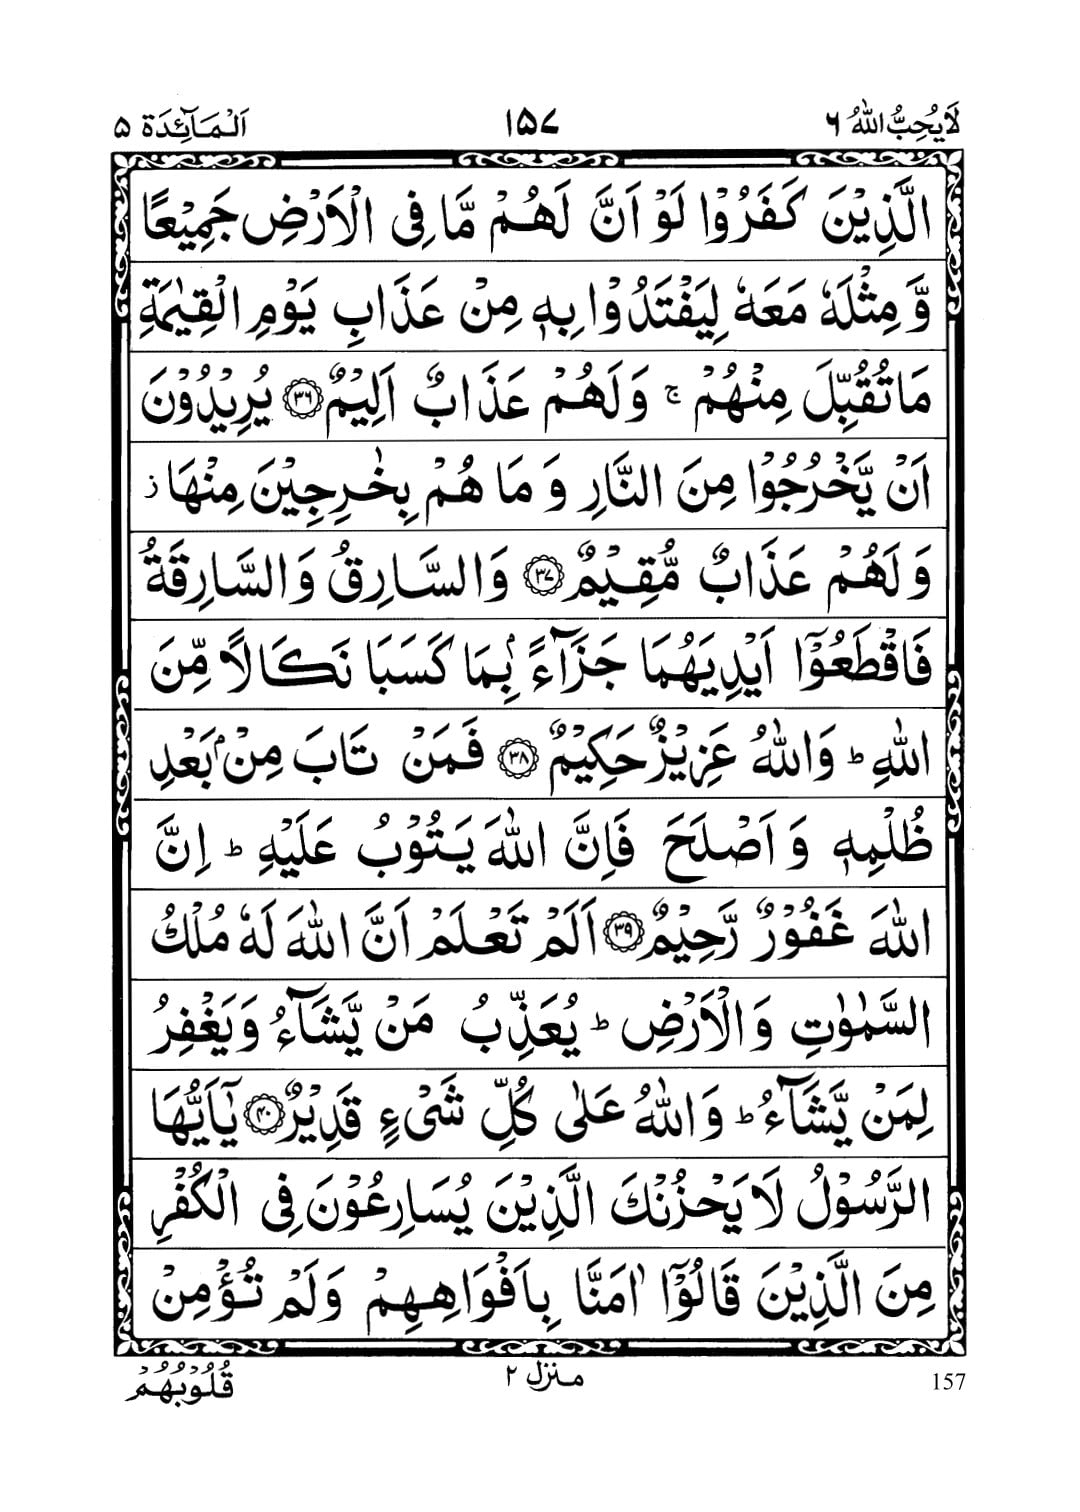 لَا يُحِبُّ اللهُ ٦
١٥٧
اَلْمَآئِدَة ٥
الَّذِيْنَ كَفَرُوْا لَوْ اَنَّ لَهُمْ مَّا فِى الْاَرْضِ جَمِيْعًا
وَّ مِثْلَهٗ مَعَهٗ لِيَفْتَدُوْا بِهٖ مِنْ عَذَابِ يَوْمِ الْقِيٰمَةِ
مَا تُقُبِّلَ مِنْهُمْ ۚ وَلَهُمْ عَذَابٌ اَلِيْمٌ ﴿۳۶﴾ يُرِيْدُوْنَ
اَنْ يَّخْرُجُوْا مِنَ النَّارِ وَ مَا هُمْ بِخٰرِجِيْنَ مِنْهَا ز
وَ لَهُمْ عَذَابٌ مُّقِيْمٌ ﴿۳۷﴾ وَالسَّارِقُ وَالسَّارِقَةُ
فَاقْطَعُوْٓا اَيْدِيَهُمَا جَزَآءًۢ بِمَا كَسَبَا نَكَالًا مِّنَ
اللهِ ؕ وَاللهُ عَزِيْزٌ حَكِيْمٌ ﴿۳۸﴾ فَمَنْ تَابَ مِنْۢ بَعْدِ
ظُلْمِهٖ وَ اَصْلَحَ فَاِنَّ اللهَ يَتُوْبُ عَلَيْهِ ؕ اِنَّ
اللهَ غَفُوْرٌ رَّحِيْمٌ ﴿۳۹﴾ اَلَمْ تَعْلَمْ اَنَّ اللهَ لَهٗ مُلْكُ
السَّمٰوٰتِ وَ الْاَرْضِ ؕ يُعَذِّبُ مَنْ يَّشَآءُ وَ يَغْفِرُ
لِمَنْ يَّشَآءُ ؕ وَ اللهُ عَلٰى كُلِّ شَىْءٍ قَدِيْرٌ ﴿۴۰﴾ يٰٓاَيُّهَا
الرَّسُوْلُ لَا يَحْزُنْكَ الَّذِيْنَ يُسَارِعُوْنَ فِى الْكُفْرِ
مِنَ الَّذِيْنَ قَالُوْٓا اٰمَنَّا بِاَفْوَاهِهِمْ وَلَمْ تُؤْمِنْ
157
منزل ٢
قُلُوْبُهُمْ